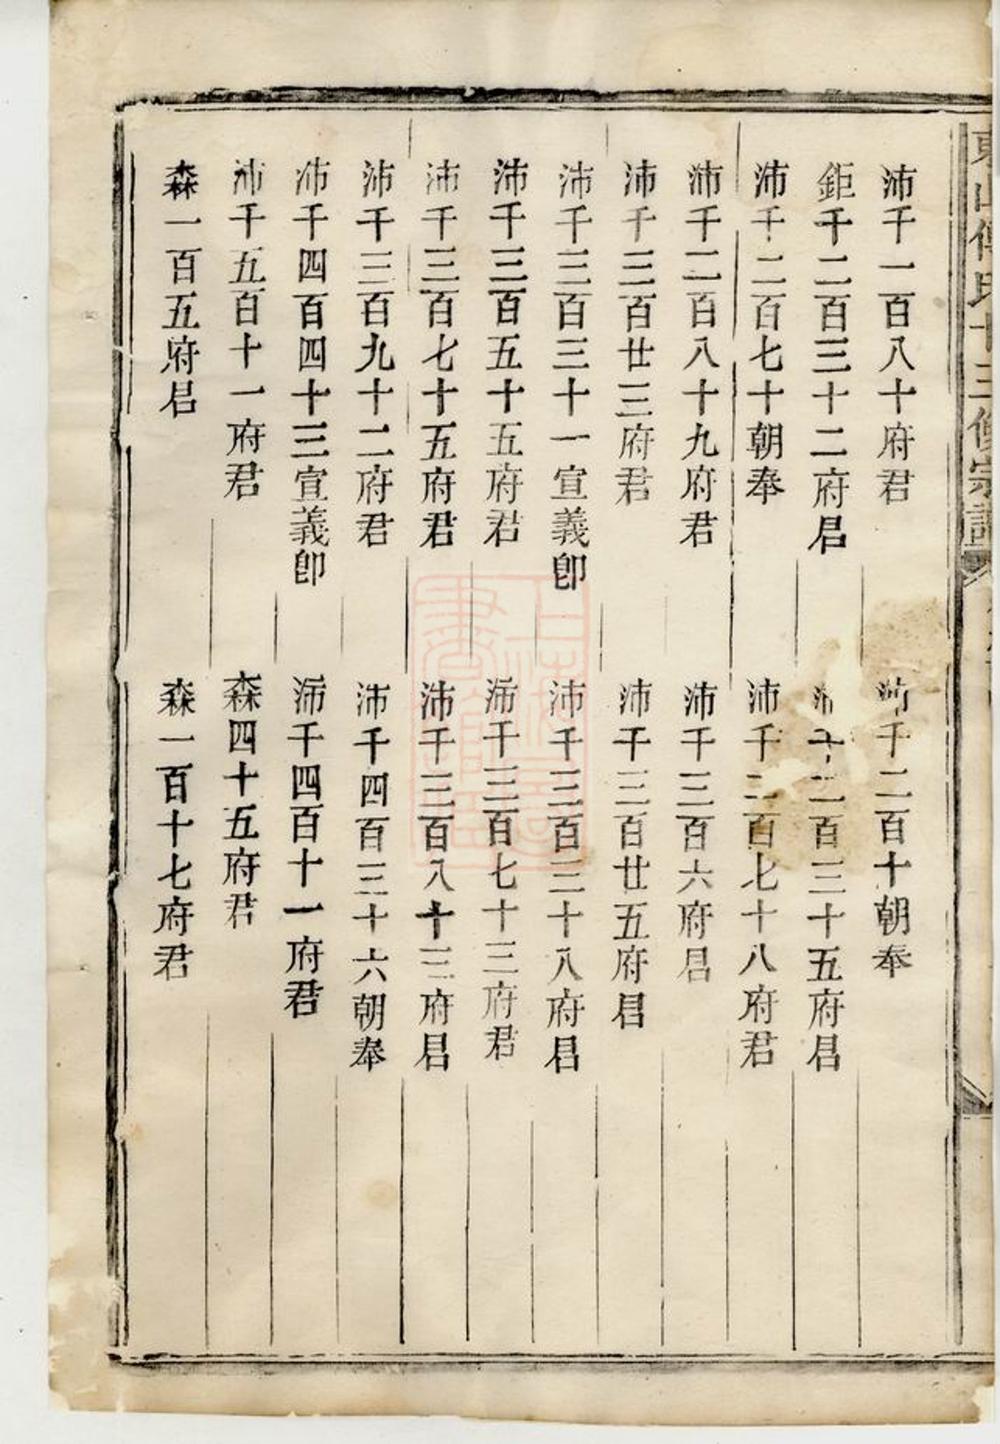 東山傅氏十三修宗譜
沛千一百八十府君
沛千二百十朝奉
鉅千二百三十二府君
沛千二百三十五府君
沛千二百七十朝奉
沛千二百七十八府君
沛千二百八十九府君
沛千三百六府君
沛千三百廿三府君
沛千三百廿五府君
沛千三百三十一宣義郎
沛千三百三十八府君
沛千三百五十五府君
沛千三百七十三府君
沛千三百七十五府君
沛千三百八十三府君
沛千三百九十二府君
沛千四百三十六朝奉
沛千四百四十三宣義郎
沛千四百十一府君
沛千五百十一府君
森四十五府君
森一百五府君
森一百十七府君